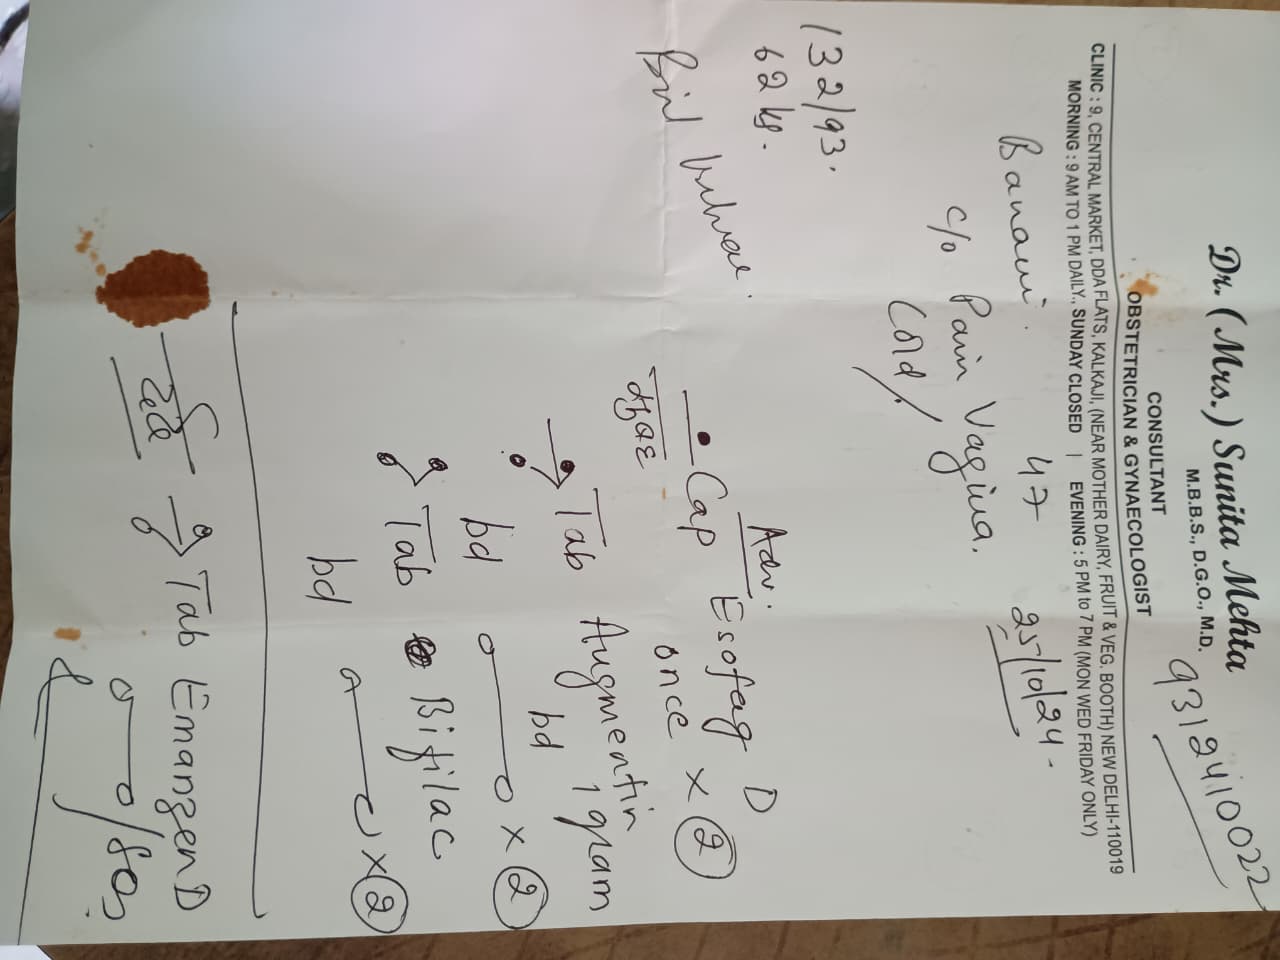 Dr. (Mrs.) Sunita Mehta
M.B.B.S., D.G.O., M.D.
9312410022
CONSULTANT
OBSTETRICIAN & GYNAECOLOGIST
CLINIC : 9, CENTRAL MARKET, DDA FLATS, KALKAJI, (NEAR MOTHER DAIRY, FRUIT & VEG. BOOTH) NEW DELHI-110019
MORNING : 9 AM TO 1 PM DAILY., SUNDAY CLOSED | EVENING : 5 PM to 7 PM (MON WED FRIDAY ONLY)
47 25/10/24
c/o Pain Vagina.
Cold
132/93.
62 kg.
Adv.
Cap Esofag D
once x 2
Tab Augmentin 1 gram
bd
bd x 2
Tab Bifilac
bd x 2
दर्द
Tab Emanzen D
/ SOS